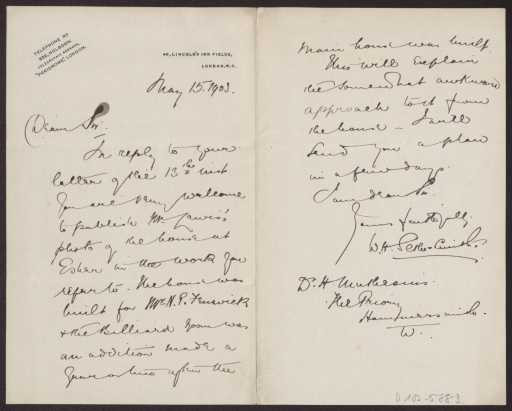 TELEPHONE NO
TELEGRAPHIC ADDRESS,
LONDON.
LINCOLN'S INN FIELDS,
LONDON, W.C.
May 15. 1903.
Dear Sir.
In reply to your
letter of the 13th inst
you are very welcome
to publish Mr Lewis's
photo of the house at
Esher in the work you
refer to. The house was
built for Mr
& the Billiard Room was
an addition made a
year or two after the
main house was built
This will explain
the somewhat awkward
approach to it from
the house — I will
send you a plan
in a few days.
I am dear Sir
Yours faithfully
W.H.
Dr H Muthesius
The Priory
Hammersmith
W.